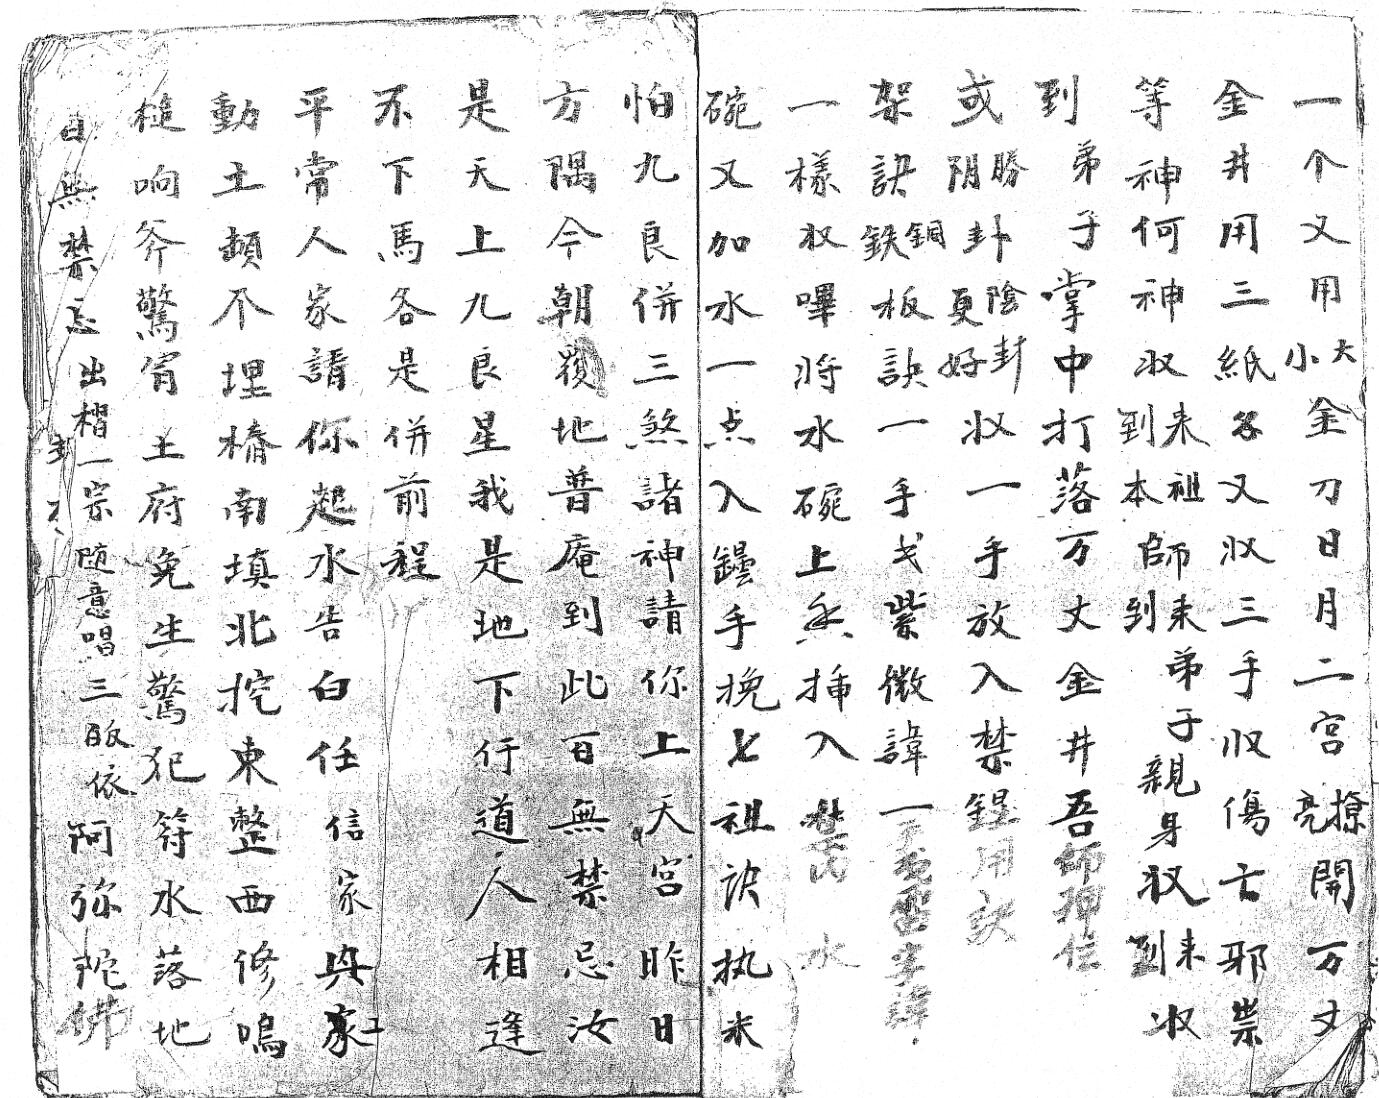 一个又用大小金刀日月二宫撩亮開万丈
金井用三紙名又収三手収傷亡邪祟
等神何神収來到祖本師來到弟子親身収來到収
到弟子掌中打落万丈金井吾師押住
或勝阴卦陰更封好収一手放入禁鋥用訣
架訣銅鉄板訣一手戈紫微諱一手戈雷字諱
一樣収嗶將水碗上香揷入禁内水
碗又加水一点入鑸手挽七祖訣执米
怕九良併三煞諸神請你上天宫昨日
方隅今朝覆地普庵到此百無禁忌汝
是天上九良星我是地下行道人相逢
不下馬各是併前程
平常人家請你起水告白任信家與家
動土顛不埋楕南填北挖東整西修鳴
槌响斧驚宵土府免生驚犯符水落地
百無禁忌出褶一宗随意唱三皈依阿弥陀佛